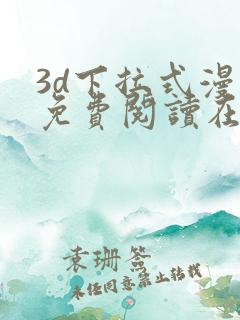 3d下拉式漫
免費閱讀在
袁珊簽
未经同意禁止转载